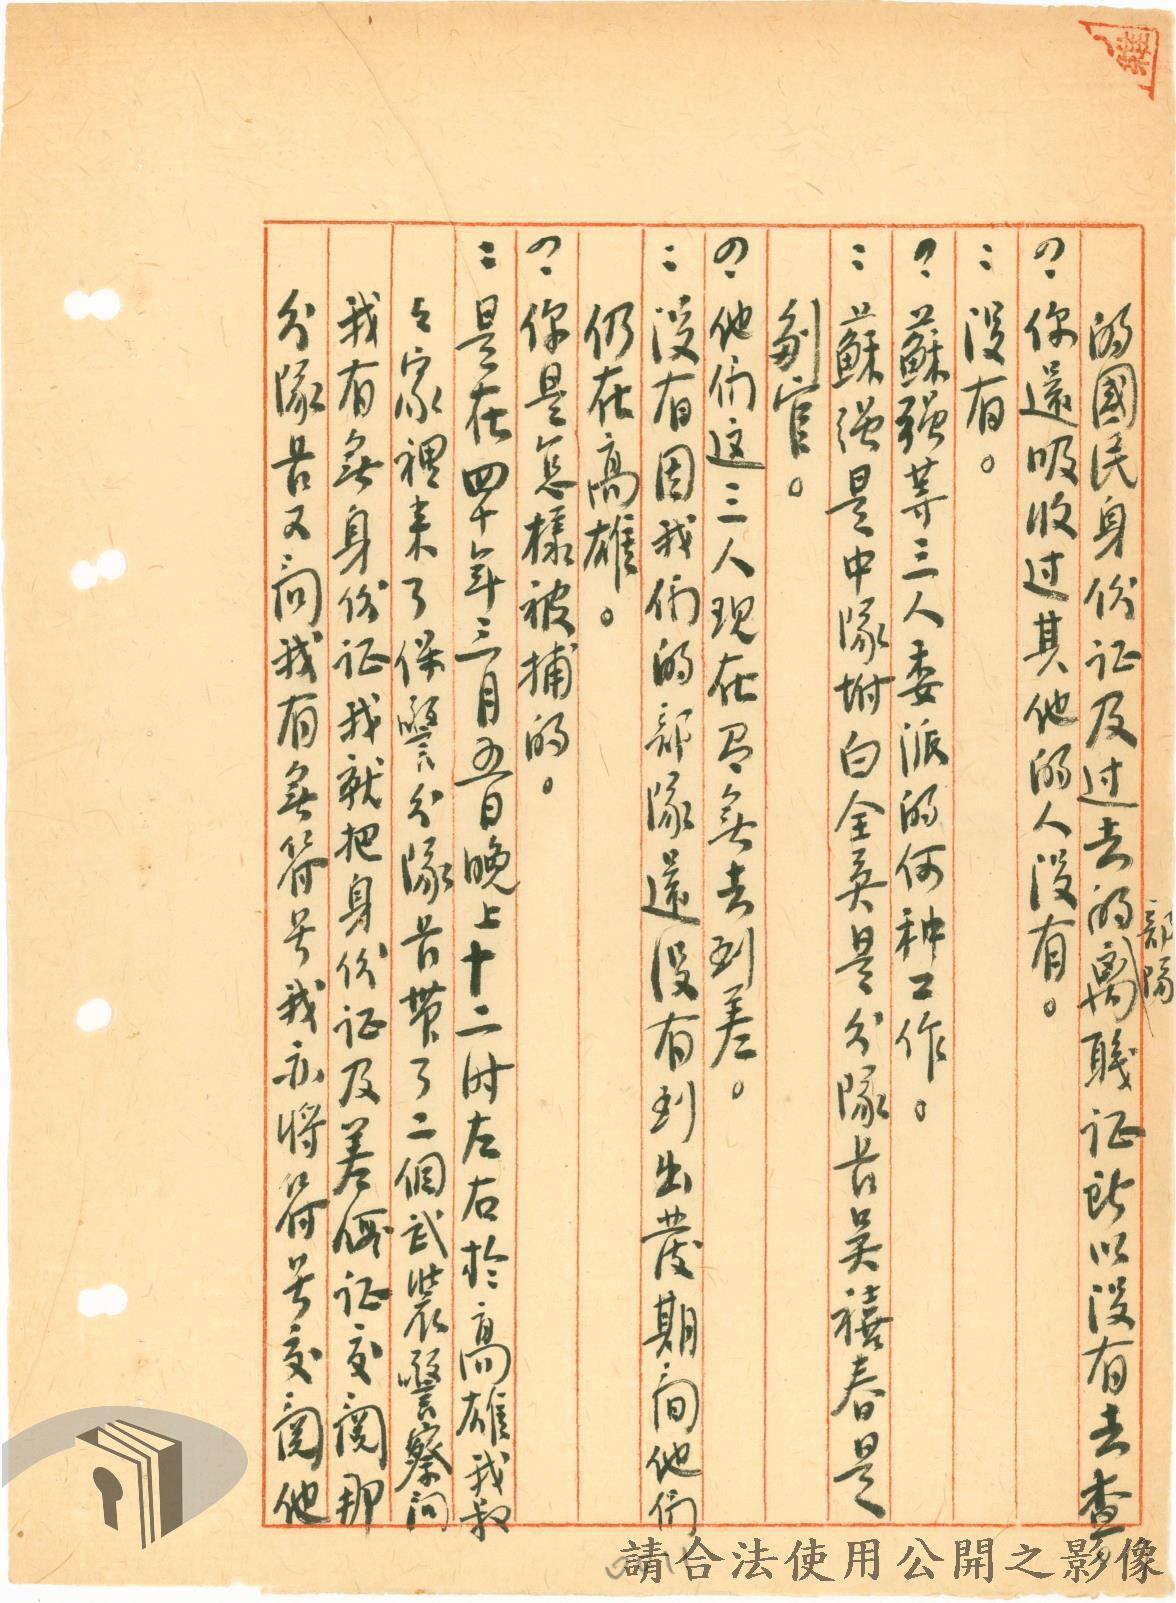 的國民身份证及过去的离职证所以没有去查
部隊
问、你還吸收过其他的人没有。
：没有。
问、蘇强等三人委派的何种工作。
：蘇强是中隊坿白全英是分隊长吴禧春是
副官。
问、他们这三人現在有無去到差。
：没有因我们的部隊還没有到出发期间他们
仍在高雄。
问、你是怎樣被捕的。
：是在四十年三月五日晚上十二时左右於高雄我叔
々家裡来了保警分隊长带了二個武装警察问
我有無身份证我就把身份证及差假证交阅那
分隊长又问我有無符号我亦将符号交阅他
請合法使用公開之影像